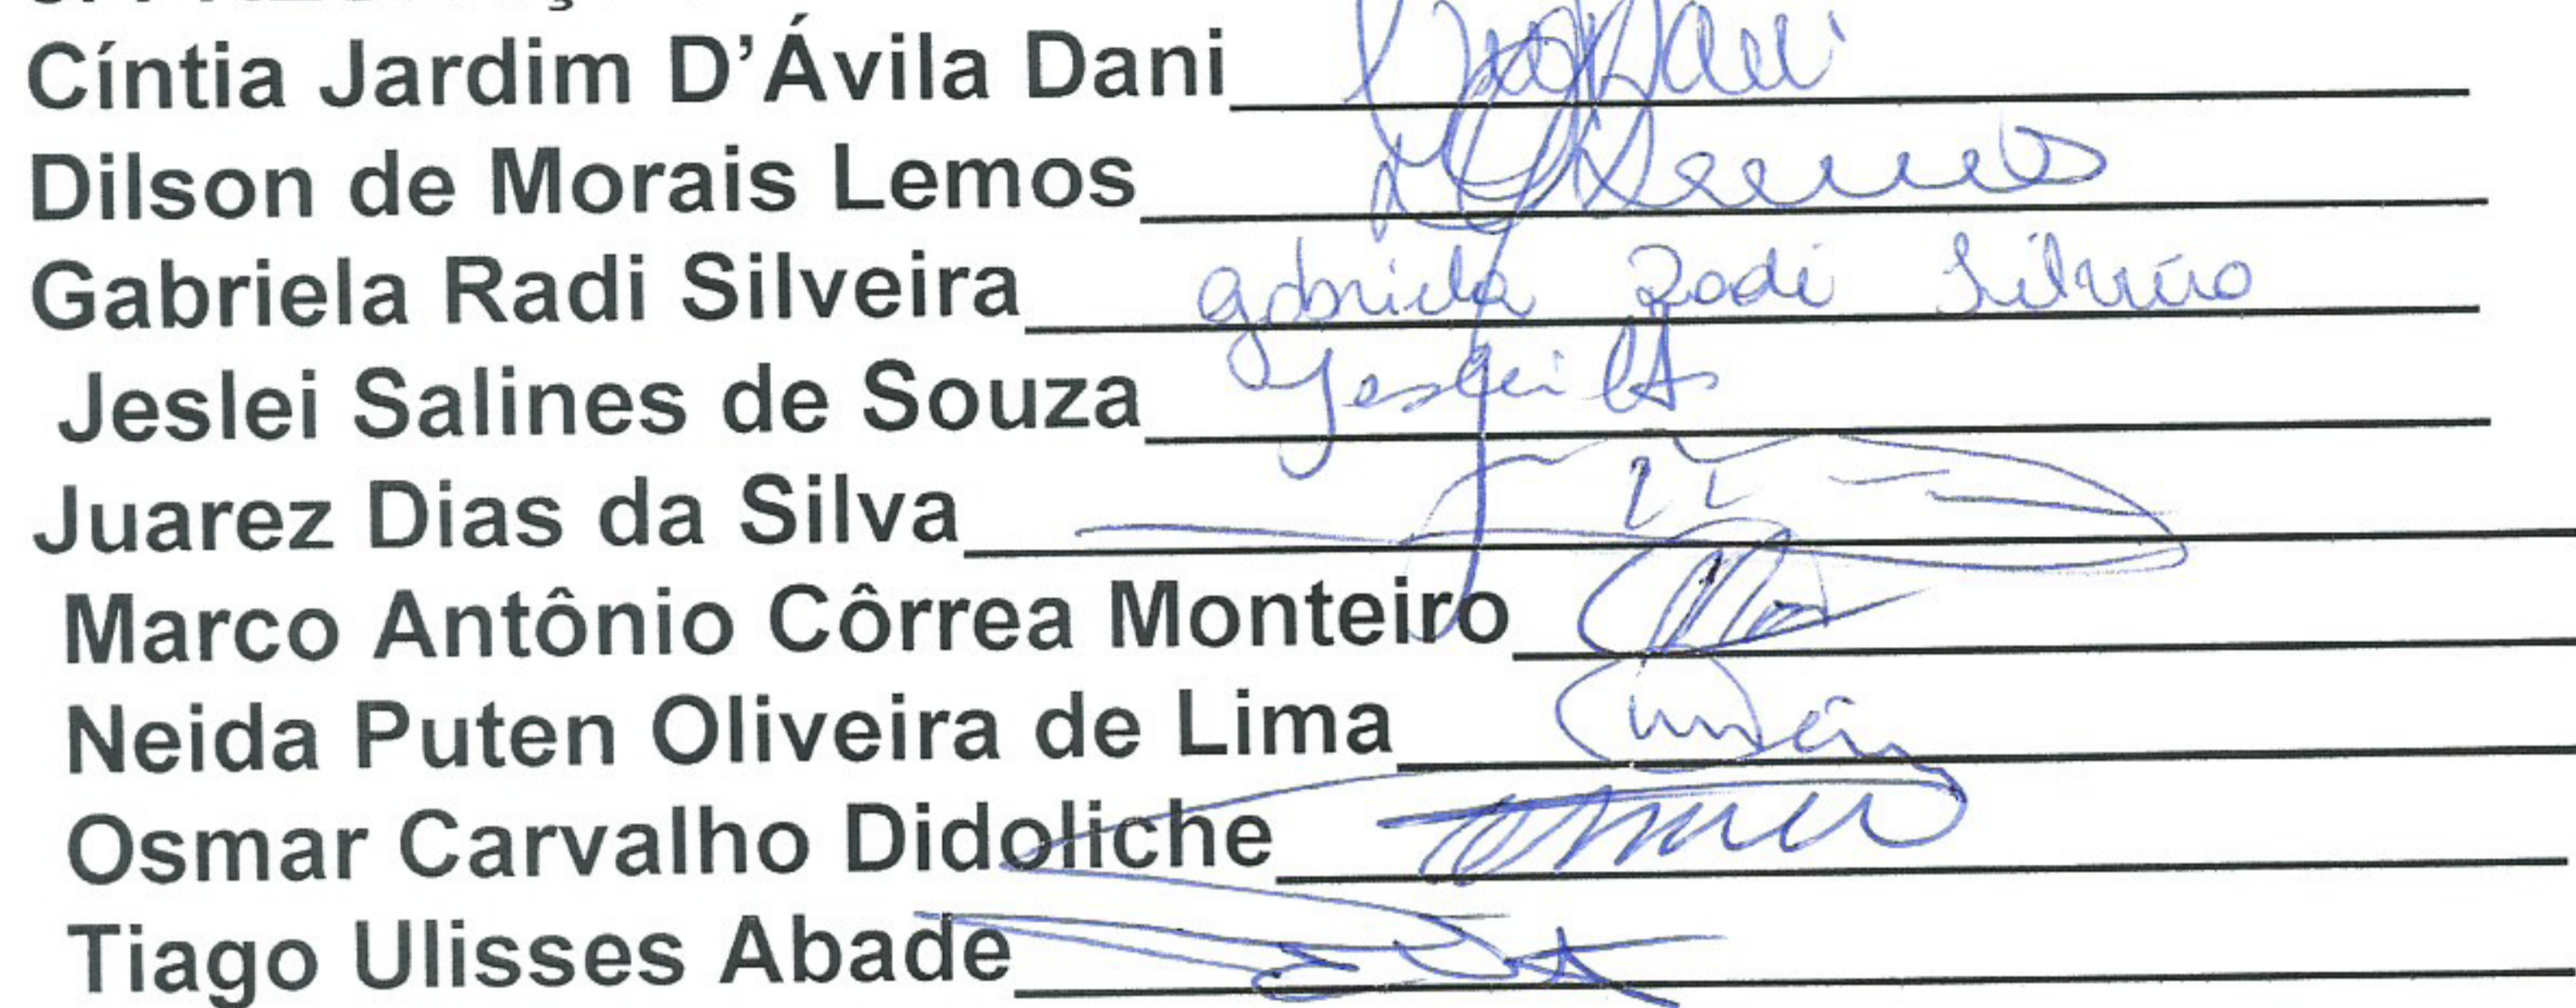 Cíntia Jardim D'Ávila Dani
Dilson de Morais Lemos Lemos
Gabriela Radi Silveira Gabriela Radi Silveira
Jeslei Salines de Souza Jeslei
Juarez Dias da Silva
Marco Antônio Côrrea Monteiro
Neida Puten Oliveira de Lima
Osmar Carvalho Didoliche
Tiago Ulisses Abade